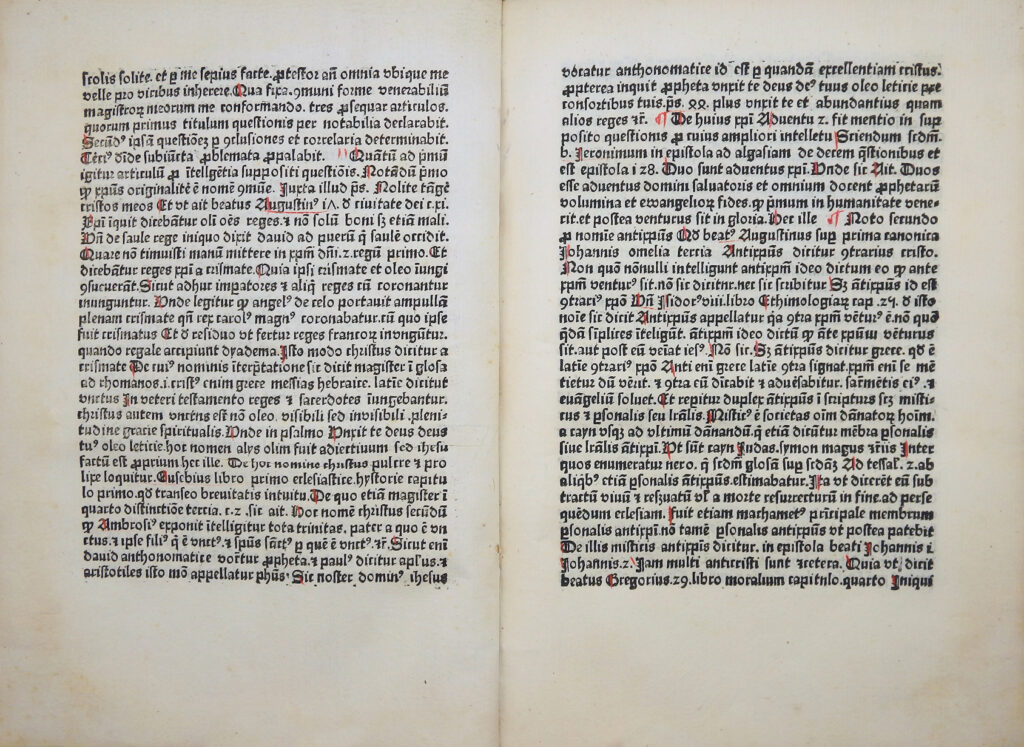 scolis solite. et ꝑ me sepius facte. ꝓtestor añ omnia vbique me
velle pro viribus inherere. Qua fixa. ꝯmuni forme venerabiliũ
magistroꝝ meorum me conformando. tres ꝓsequar articulos.
quorum primus titulum questionis per notabilia declarabit.
Secũdꝰ ipsã questiõeꝫ ꝑ ꝯclusiones et correlaria determinabit.
Tercꝰ dĩde subiũcta ꝓblemata ꝓpalabit. Quãtũ ad pͥmũ
igitur articulũ ꝓ ĩtellgẽtia suppositi questiõis. Notãdũ pͥmo
ꝙ xp̃us originalitẽ ẽ nomẽ ꝯmue. Juxta illud p̃s. Nolite tãgẽ
cristos meos Et vt ait beatus Augustinꝰ iꝨ. ď ciuitate dei c. xi.
Xp̃ni inquit dicebãtur olĩ oẽs reges. ⁊ non solũ boni sꝫ etiã mali.
Vñ de saule rege iniquo dixit dauid ad puerũ q̃ saulẽ occidit.
Quare nõ timuisti manũ mittere in xp̃m dñi. 2. regũ primo. Et
dicebãtur reges xp̃i a crismate. Quia ipsi crismate et oleo iũngi
ꝯsueuerãt. Sicut adhuc imꝑatores ⁊ aliq̃ reges cũ coronantur
inunguntur. Vnde legitur ꝙ angelꝰ de celo portauit ampullã
plenam crismate qñ rex carolꝰ magnꝰ coronabatur. cũ quo ipse
fuit crismatus Et ď residuo vt fertur reges francoꝝ inungũtur.
quando regale accipiunt dyadema. Isto modo christus dicitur a
crismate De cuiꝰ nominis iterp̃tatione sic dicit magister ĩ glosa
ad rhomanos. i. cristꝰ enim grece messias hebraice. latĩe dicitut
vnctus In veteri testamento reges ⁊ sacerdotes iũngebantur.
christus autem vnctus est nõ oleo. visibili sed invisibili. pleni⸗
tudine gracie spiritualis. Vnde in psalmo Vnxit te deus deus
tuꝰ oleo leticie. hoc nomen alys olim fuit adiectiuum sed ihesu
factũ est ꝓprium hec ille. De hoc nomine christus pulcre ⁊ pro
lixe loquitur. Eusebius libro primo ecclesiastice. hystorie capitu
lo primo. qď transeo breuitatis intuitu. De quo etiã magister ĩ
quarto distinctiõe tercia. c. 2. sic ait. Hoc nomẽ christus secũdũ
ꝙ Ambrosiꝰ exponit ĩtelligitur tota trinitas. pater a quo ẽ vn
ctus. ⁊ ipse filiꝰ q̃ ẽ vnctꝰ. ⁊ sp̃us sãctꝰ ꝑ quẽ ẽ vnctꝰ. ⁊c̃. Sicut eni
dauid anthonomatice vocr̃tur ꝓpheta. ⁊ paulꝰ dicitur apl̃us. ⁊
aristotiles isto mõ appellatur ph̃us. Sic noster dominꝰ ihesus
vocatur anthonomatice id est ꝑ quandã excellentiam cristus.
ꝓpterea inquit ꝓpheta vnxit te deus deꝰ tuus oleo leticie pre
consortibus tuis. p̃s. 88. plus vnxit te et abundantius quam
alios reges ⁊c̃. De huius xp̃i Aduentu 2. fit mentio in sup
posito questionis ꝓ cuius ampliori intellctu Sciendum scďm.
b. Jeronimum in epistola ad algasiam de decem q̃stionibus et
est epistola i 28. Duo sunt aduentus xp̃i. Vnde sic Ait. Duos
esse aduentus domini saluatoris et omnium docent ꝓphetarũ
volumina et ewangelioꝝ fides. ꝙ pͥmum in humanitate vene⸗
rit. et postea venturus sit in gloria. Hec ille Noto secundo
ꝓ nomĩe antixp̃us Qď beatꝰ Augustinus suꝑ prima canonica
Johannis omelia tercia Antixp̃us dicitur ꝯtrarius cristo.
Non quõ nõnulli intelligunt antixp̃m ideo dictum eo ꝙ ante
xp̃m venturꝰ sit. nõ sic dicitnr. nec sic scribitur Sꝫ antixp̃us id est
ꝯtrariꝰ xp̃o Vñ Isidorꝰ viii. libro Ethimologiaꝝ cap. 27. ď isto
noĩe sic dicit Antixp̃us appellatur q̃a ꝯtra xp̃m vẽturꝰ ẽ. nõ quõ
q̃dã sĩplices ĩteligũt. ãtixp̃m ideo dictũ ꝙ ãte xp̃m vẽturus
sit. aut post eũ vẽiat iesꝰ. Nõ sic. Sꝫ ãtixp̃us dicitur grece. qď ẽ
latĩe ꝯtrariꝰ xp̃o Anti eni grece latĩe ꝯtra signat. xp̃m eni se mẽ
tietur dũ vẽit. ⁊ ꝯtra eũ dĩcabit ⁊ aduẽsabitur. sacr̃mẽtis ciꝰ. ⁊
euãgeliũ soluet. Et reꝑitur duplex ãtixp̃us ĩ scripturis scꝫ misti⸗
cus ⁊ ꝑsonalis seu lr̃alis. Misticꝰ ẽ societas oĩm dãnatoꝝ hoĩm.
a cayn vsqꝫ ad vltimũ dãnandũ. q̃ etiã dicũtur mẽbra ꝑsonalis
siue lr̃alis ãtixp̃i. Vt sũt cayn Judas. symon magus ⁊c̃iis Inter
quos enumeratur nero. q̃ scďm glosã suꝑ scďã Ad tessal. 2. ab
aliqͥbꝰ etiã ꝑsonalis ãtixp̃us. estimabatur. Ita vt dicerẽt eũ sub
tractũ viuũ ⁊ reẜuatũ vl̃ a morte resurrecturũ in fine. ad perse
quẽdum ecclesiam. fuit etiam machametꝰ pricipale membrum
ꝑsonalis antixp̃i. nõ tamẽ ꝑsonalis antixp̃us vt postea patebit
De illis misticis antixp̃is dicitur. in epistola beati Johannis i.
Johannis. 2. Jam multi anticristi sunt ⁊cetera. Quia vt dicit
beatus Gregorius. 29. libro moralium capitnlo. quarto Iniqui